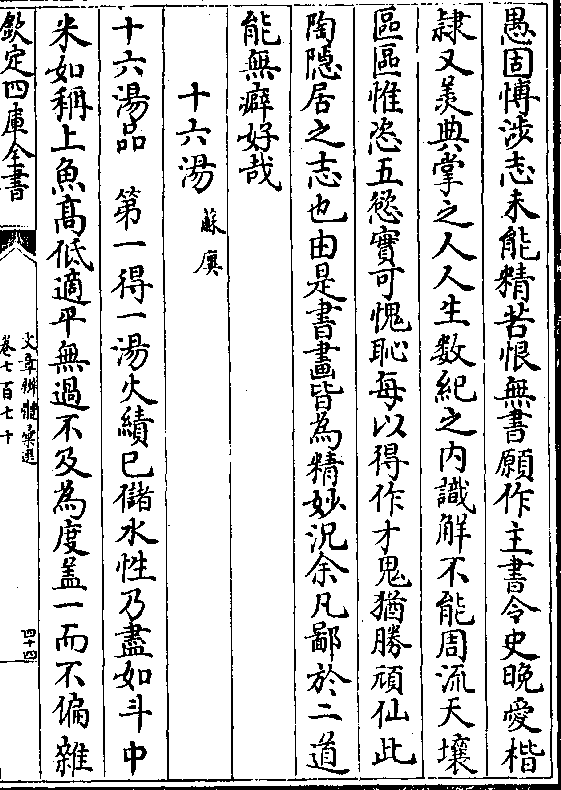 愚固博涉志未能精苦恨無書願作主書令史晩愛楷
隷又羨典掌之人人生數紀之内識解不能周流天壤
區區惟恣五慾實可愧恥每以得作才鬼猶勝頑仙此
陶隠居之志也由是書畫皆為精妙況余凡鄙於二道
能無癖好哉
十六湯
蘇廙
十六湯品　第一得一湯火績已儲水性乃盡如斗中
米如稱上魚髙低適平無過不及為度盖一而不偏雜
欽定四庫全書
文章辨體彙選
卷七百七十
四十四